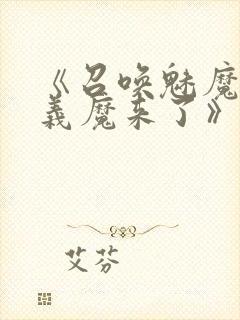 《召唤魅魔
义魔来了》
艾芬